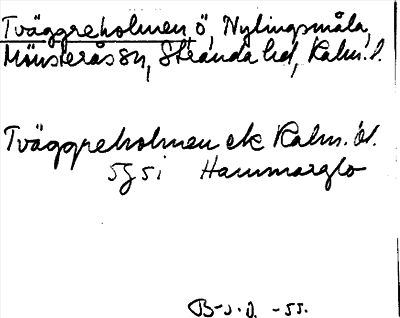 Tväggreholmen ö, Nylingsmåla,
Mönsterås sn, Stranda hd, Kalm. l.
Tväggreholmen ek Kalm. bl.
5g5i Hammarglo
B-s.d. -55.